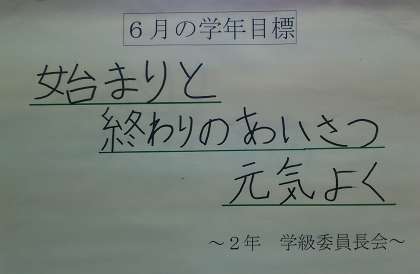 ６月の学年目標
始まりと
終わりのあいさつ
元気よく
～２年　学級委員長会～